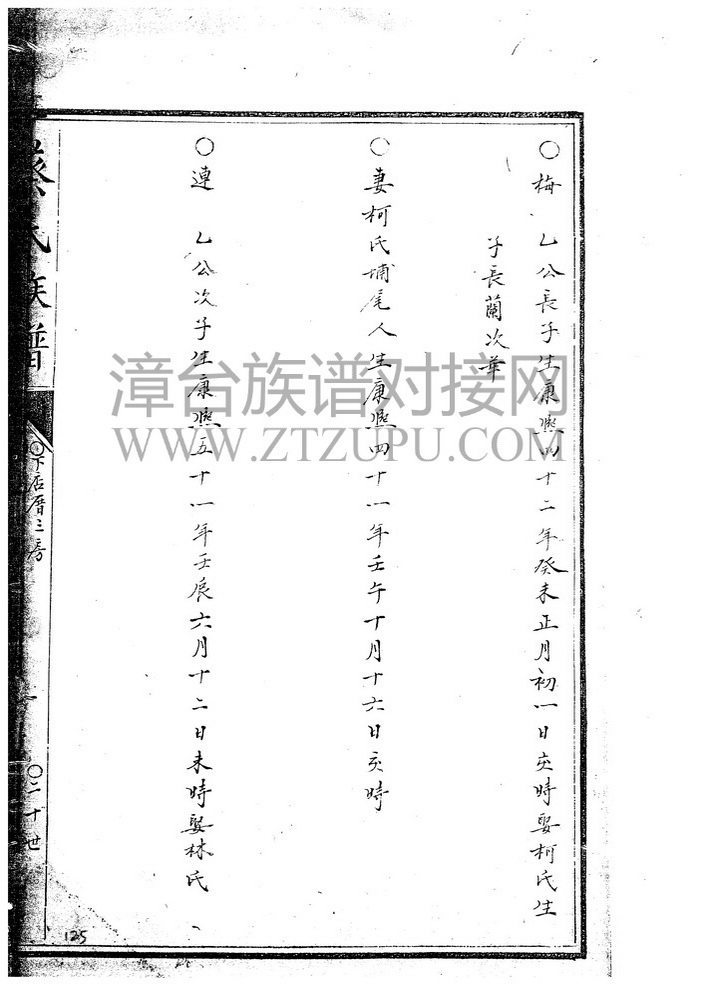 ○梅　乙公長子生康熙四十二年癸未正月初一日亥時娶柯氏生
子長蘭次華
○妻柯氏埔尾人生康熙四十一年壬午十月十六日亥時
○連　乙公次子生康熙五十一年壬辰六月十二日未時娶林氏
蔡氏族譜
○下店厝二房
○二十世
125
漳台族谱对接网
WWW.ZTZUPU.COM